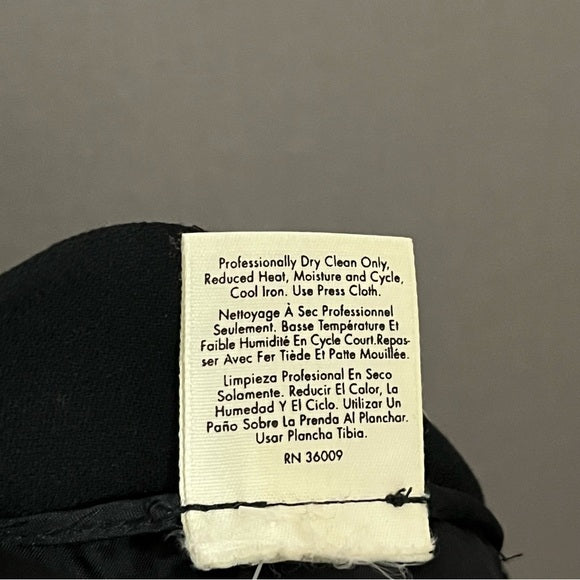 Professionally Dry Clean Only,
Reduced Heat, Moisture and Cycle,
Cool Iron. Use Press Cloth.
Nettoyage À Sec Professionnel
Seulement. Basse Température Et
Faible Humidité En Cycle Court.Repas-
ser Avec Fer Tiède Et Patte Mouillée.
Limpieza Profesional En Seco
Solamente. Reducir El Calor, La
Humedad Y El Ciclo. Utilizar Un
Paño Sobre La Prenda Al Planchar.
Usar Plancha Tibia.
RN 36009